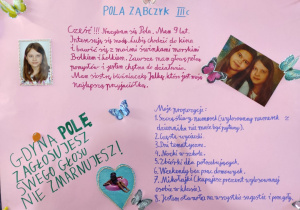 POLA ZĄBCZYK IIIc
Cześć!!! Nazywam się Pola. Mam 9 lat.
Interesuję się modą. Lubię chodzić do kina
i bawić się z moimi świnkami morskimi
Bolkiem i Lolkiem. Zawsze mam głowę pełną
pomysłów i jestem chętna do działania.
Mam siostrę bliźniaczkę Julkę, która jest moją
najlepszą przyjaciółką.
GDY NA POLĘ
ZAGŁOSUJESZ
SWEGO GŁOSU
NIE ZMARNUJESZ!
Moje propozycje:
1. Szczęśliwy numerek (wylosowany numerek w
dzienniku nie może być pytany).
2. Częste wycieczki.
3. Dni tematyczne.
4. Nocki w szkole.
5. Zbiórki dla potrzebujących.
6. Weekendy bez prac domowych.
7. Mikołajki (
osobie w klasie).
8. Jestem otwarta na wszystkie sugestie i pomysły.